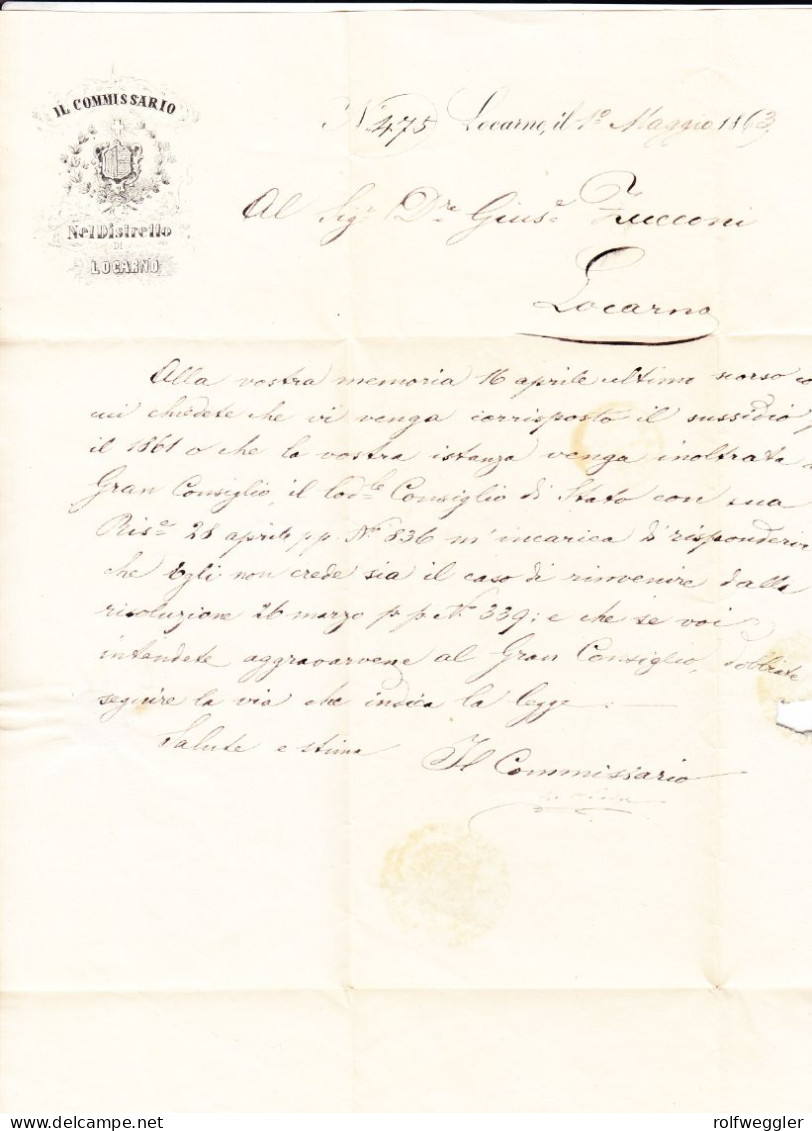 IL COMMISSARIO
Nel Distretto
DI
LOCARNO
N.° 475 Locarno, il 1° Maggio 1863
Al Sig.r D.re Gius.e Zucconi
Locarno
Alla vostra memoria 16 aprile ultimo scorso co
cui chiedete che vi venga corrisposto il sussidio p
il 1861 o che la vostra istanza venga inoltrata a
Gran Consiglio, il lod.le Consiglio di Stato con sua
Ris.e 28 aprile pp. N.° 836 m'incarica di rispondervi
che Egli non crede sia il caso di rinvenire dalla
risoluzione 26 marzo p. p. N.° 339; e che se voi
intendete aggravarvene al Gran Consiglio, dobbiate
seguire la via che indica la legge.
Salute e stima Il Commissario
rolfweggler